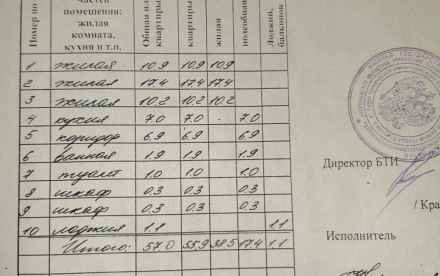 Номер по
частей
помещения:
жилая
комната,
кухня и т.п.
Общая пл
квартиры
квартиры
жилая
подсобная
Лоджий,
балконов
1 жилая 10.9 10.9 10.9
2 жилая 17.4 17.4 17.4
3 жилая 10.2 10.2 10.2
4 кухня 7.0 7.0 - 7.0
5 коридор 6.9 6.9 6.9
6 ванная 1.9 1.9 1.9
7 туалет 1.0 1.0 1.0
8 шкаф 0.3 0.3 0.3
9 шкаф 0.3 0.3 0.3
10 лоджия 1.1 1.1
Итого: 57.0 55.9 38.5 17.4 1.1
Директор БТИ
/ Кра
Исполнитель